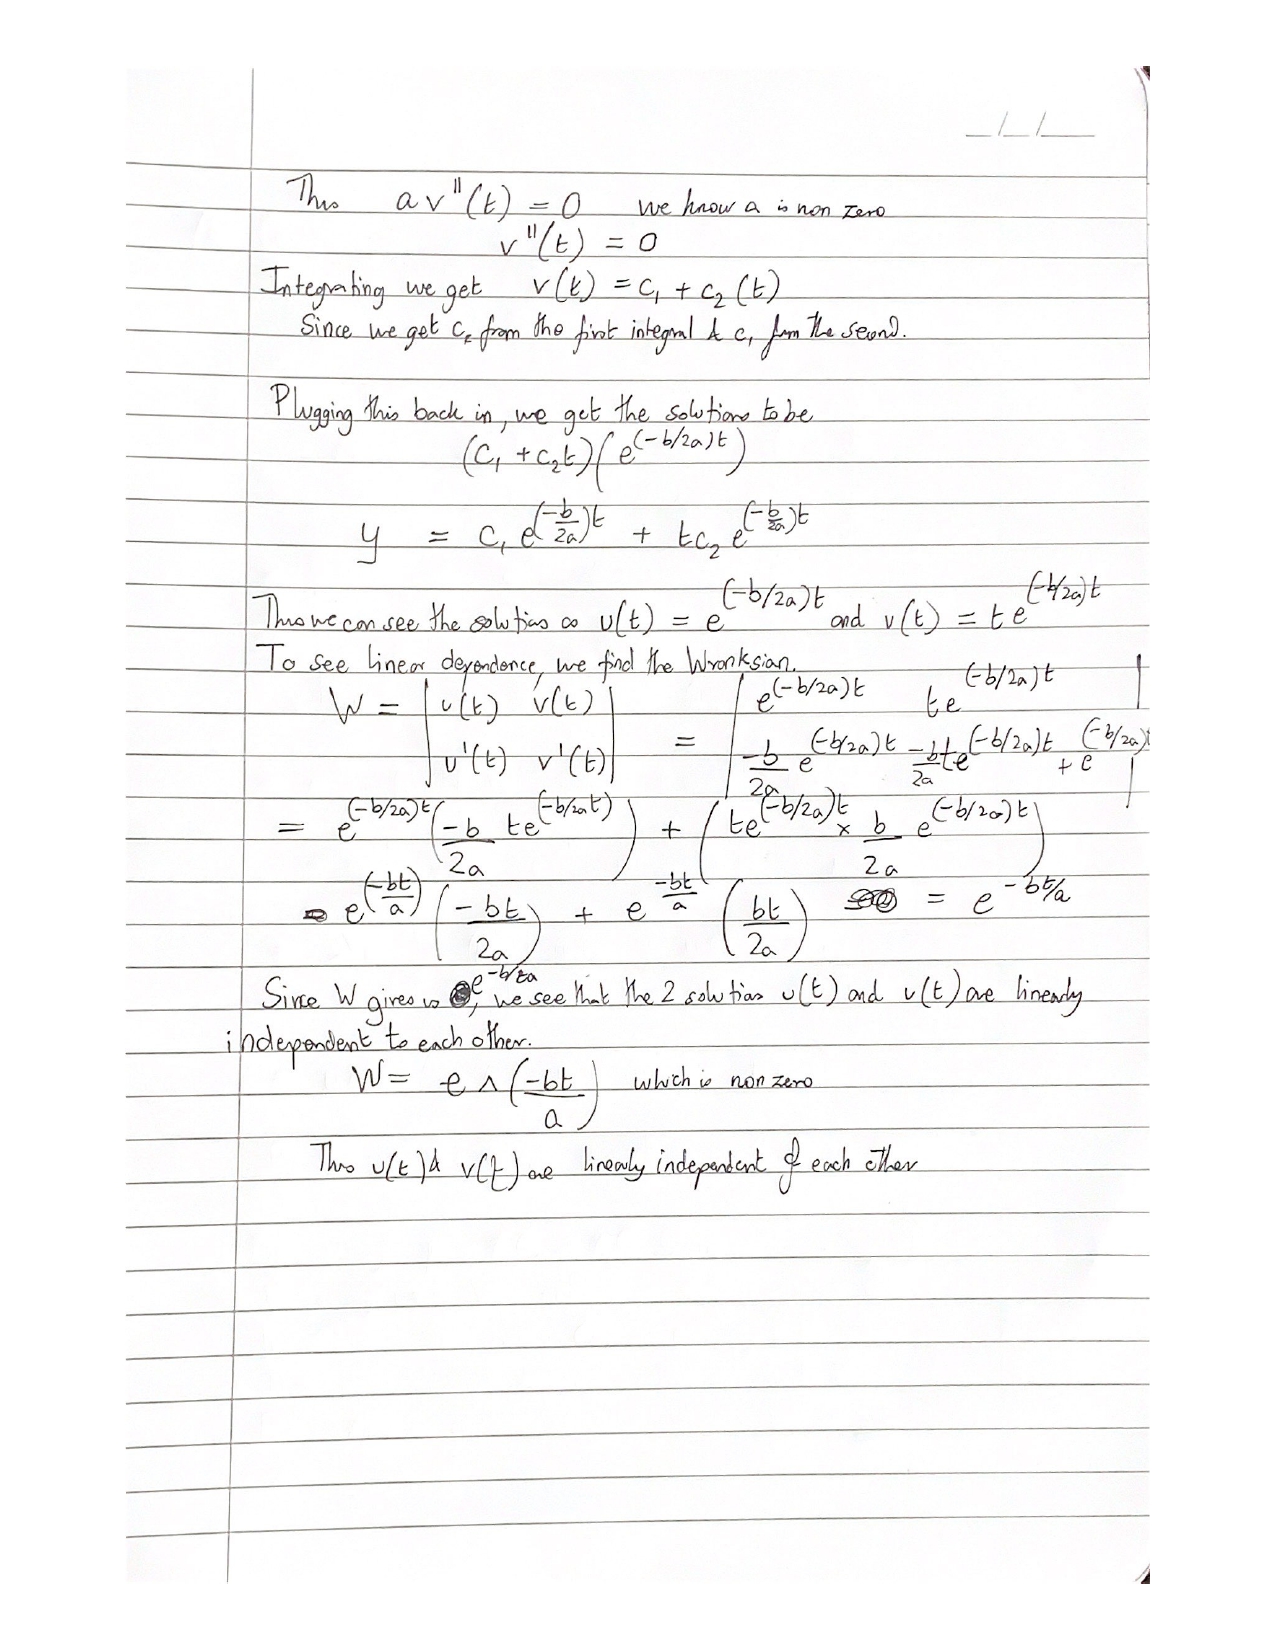 _/_/_
Thus a v''(t) = 0 we know a is non zero
v''(t) = 0
Integrating we get v(t) = c₁ + c₂ (t)
Since we get c₂ from the first integral & c₁ from the second.
Plugging this back in, we get the solutions to be
(C₁ + c₂t)(e^(-b/2a)t)
y = c₁ e^(-b/2a)t + tc₂ e^(-b/2a)t
Thus we can see the solutions as u(t) = e^(-b/2a)t and v(t) = te^(-b/2a)t
To see linear dependence, we find the Wronksian.
W = | u(t) v(t) | = | e^(-b/2a)t te^(-b/2a)t |
| u'(t) v'(t) | | -b/2a e^(-b/2a)t -b/2a te^(-b/2a)t + e^(-b/2a) |
= e^(-b/2a)t (-b/2a te^(-b/2a t)) + (te^(-b/2a)t × b/2a e^(-b/2a)t)
e^(-bt/a) (-bt/2a) + e^-bt/a (bt/2a) = e^-bt/a
Since W gives us e^-b/ta, we see that the 2 solutions u(t) and v(t) are linearly
independent to each other.
W = e ^ (-bt/a) which is non zero
Thus u(t) & v(t) are linearly independent of each other